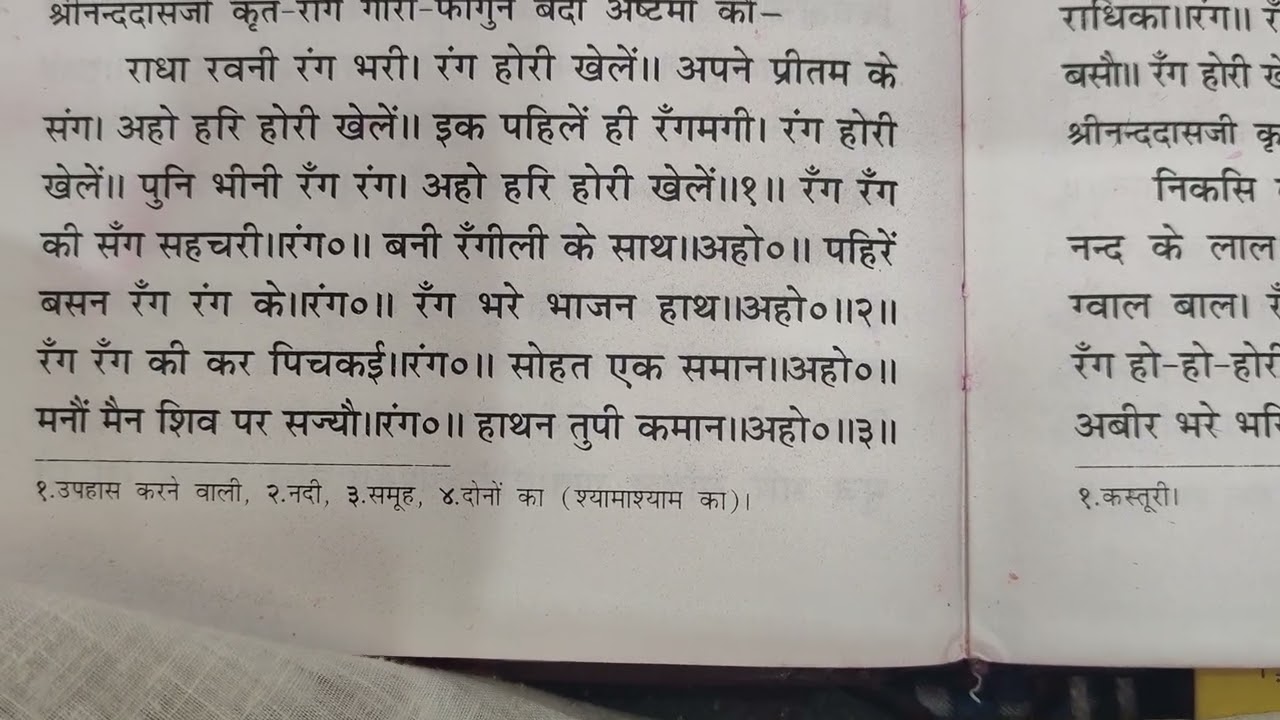 श्रीनन्ददासजी कृत-राग गौरी-फागुन बदी अष्टमी को-
राधा रवनी रंग भरी। रंग होरी खेलें॥ अपने प्रीतम के
संग। अहो हरि होरी खेलें॥ इक पहिलें ही रँगमगी। रंग होरी
खेलें॥ पुनि भीनी रँग रंग। अहो हरि होरी खेलें॥१॥ रँग रँग
की सँग सहचरी॥रंग०॥ बनी रँगीली के साथ॥अहो०॥ पहिरें
बसन रँग रंग के॥रंग०॥ रँग भरे भाजन हाथ॥अहो०॥२॥
रँग रँग की कर पिचकई॥रंग०॥ सोहत एक समान॥अहो०॥
मनौं मैन शिव पर सज्यौ॥रंग०॥ हाथन तुपी कमान॥अहो०॥३॥
१.उपहास करने वाली, २.नदी, ३.समूह, ४.दोनों का (श्यामाश्याम का)।
राधिका॥रंग॥
बसौ॥ रँग होरी
श्रीनन्ददासजी
निकसि
नन्द के लाल
ग्वाल बाल।
रँग हो-हो-होरी
अबीर भरे
१.कस्तूरी।